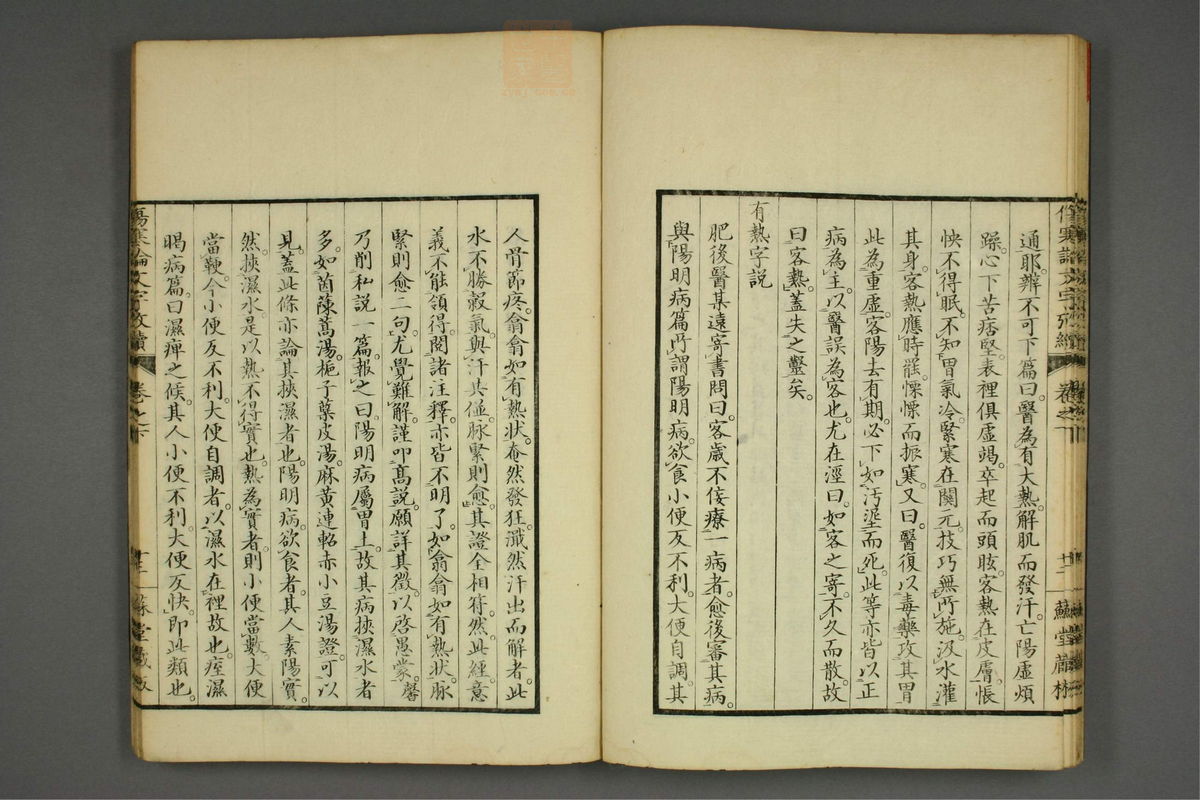 傷寒論文字攷續
卷之下
十二
蘇堂藏板
通耶。辨不可下篇曰。醫為有大熱。解肌而發汗。亡陽虛煩
躁。心下苦痞堅。表裡俱虛竭。卒起而頭眩。客熱在皮膚。悵
怏不得眠。不知胃氣冷。緊寒在關元。技巧無所施。汲水灌
其身。客熱應時罷。慄慄而振寒。又曰。醫復以毒藥攻其胃
此為重虛。客陽去有期。必下如汚埿而死。此等亦皆以正
病為主。以醫誤為客也。尤在涇曰。如客之寄。不久而散。故
曰客熱。蓋失之鑿矣。
有熱字說
肥後醫某遠寄書問曰。客歲不佞療一病者。愈後審其病。
與陽明病篇所謂陽明病。欲食小便反不利。大便自調。其
人骨節疼。翕翕如有熱狀。奄然發狂。濈然汗出而解者。此
水不勝穀氣。與汗共倂。脉緊則愈。其證全相符。然此經意
義不能領得。閱諸注釋。亦皆不明了。如翕翕如有熱狀。脉
緊則愈二句。尤覺難解。謹叩高說。願詳其徵。以啓愚蒙。馨
乃削私說一篇。報之曰。陽明病屬胃土。故其病挾濕水者
多。如茵蔯蒿湯。梔子蘗皮湯。麻黃連軺赤小豆湯證可以
見。蓋此條亦論其挾濕者也。陽明病。欲食者。其人素陽實。
然挾濕水。是以熱不得實也。熱為實者。則小便當數。大便
當鞕。今小便反不利。大便自調者。以濕水在裡故也。痓濕
暍病篇。曰濕痺之候。其人小便不利。大便反快。即此類也。
傷寒論文字攷續
卷之下
十三
蘇堂藏板